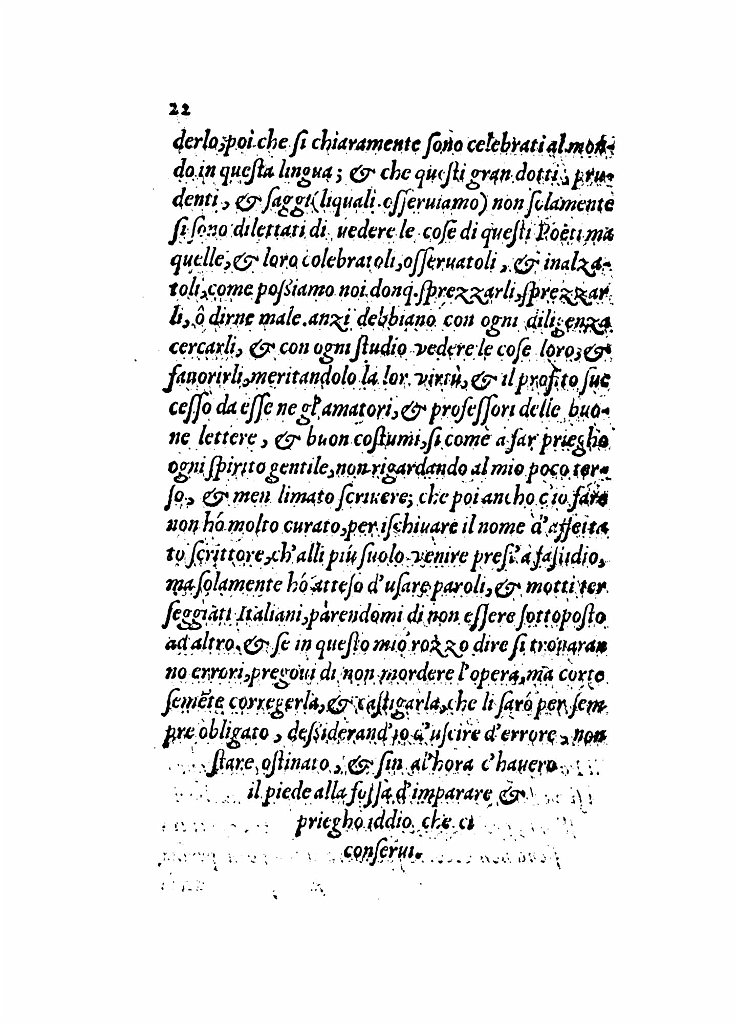 22
derlo, poi che ſi chiaramente ſono celebrati al mon-
do in queſta lingua; & che queſti gran dotti, pru-
denti, & ſaggi (liquali oſſeruiamo) non ſolamente
ſi ſono dilettati di vedere le coſe di queſti Poëti ma
quelle, & loro celebratoli, oſſeruatoli, & inalza-
toli, come poſſiamo noi donq. ſprezzarli, ſprezzar
li, ô dirne male. anzi debbiano con ogni diligenza
cercarli, & con ogni ſtudio vedere le coſe loro, &
fauorirli, meritandolo la lor virtù, & il profito ſuc
ceſſo da eſſe ne gl'amatori, & profeſſori delle buo-
ne lettere, & buon coſtumi, ſi come a far priegho
ogni ſpirito gentile, non rigardando al mio poco ter-
ſo, & men limato ſcriuere; che poi ancho c'io fare
non hó molto curato, per iſchiuare il nome d'affetta
to ſcrittore, ch'alli piú ſuolo venire preſt'a faſtidio,
ma ſolamente hó atteſo d'uſare paroli, & motti ter
ſeggiati Italiani, parendomi di non eſſere ſottopoſto
ad altro. & ſe in queſto mio rozzo dire ſi trouaran
no errori, pregoui di non mordere l'opera, ma corte
ſemēte corregerla, & caſtigarla, che li ſaró per ſem
pre obligato, deſſiderand'io d'uſcire d'errore, non
ſtare oſtinato, & ſin al'hora c'hauero
il piede alla foſſa d'imparare &
priegho iddio che ci
conſerui.